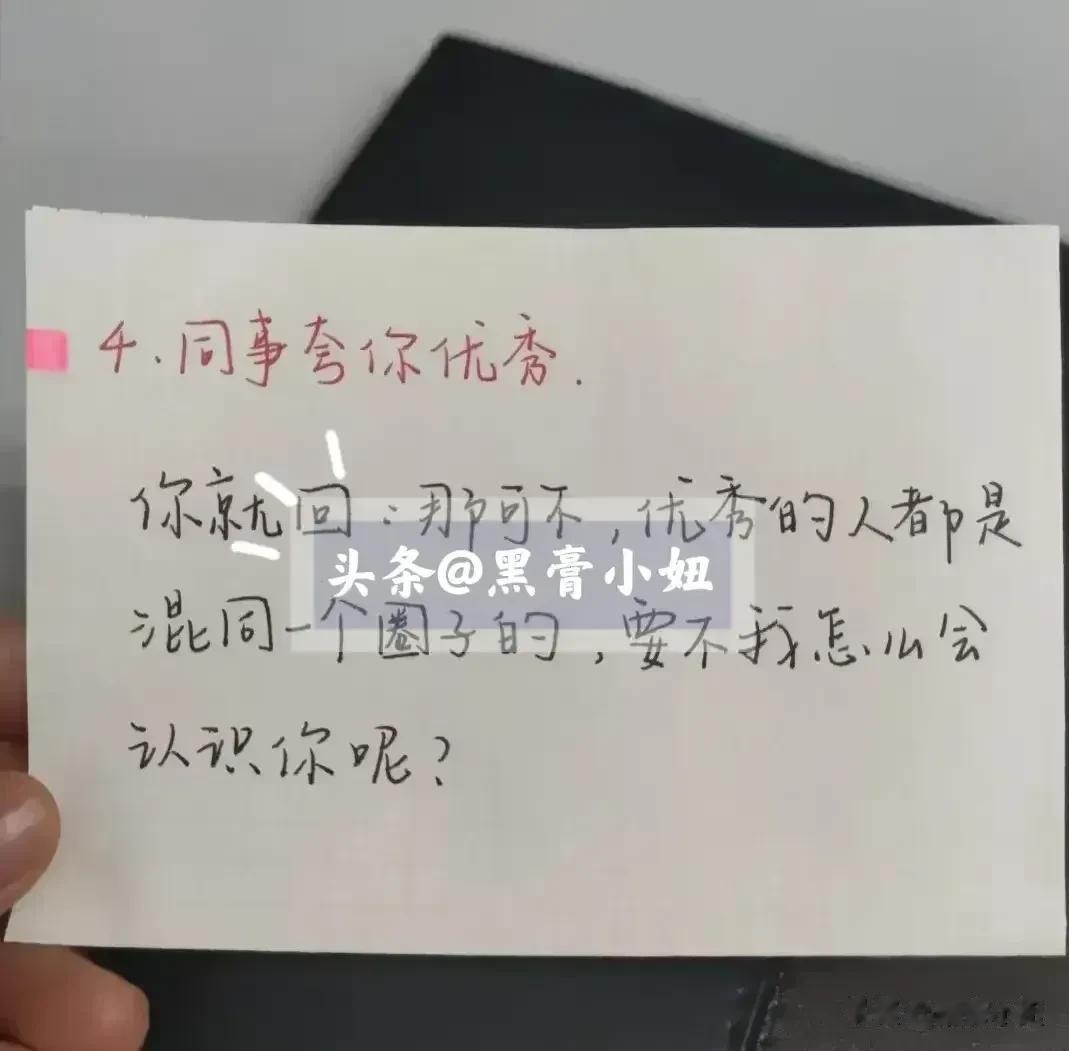 4.同事夸你优秀.
你就回:那可不,优秀的人都是
头条@黑膏小妞
混同一个圈子的,要不我怎么会
认识你呢?